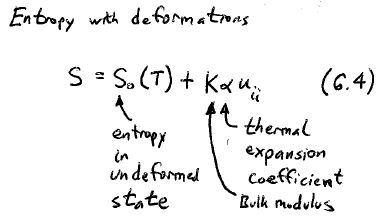 Entropy with deformations
S = S₀(T) + Kαuᵢᵢ (6.4)
entropy
in
undeformed
state
thermal
expansion
coefficient
Bulk modulus